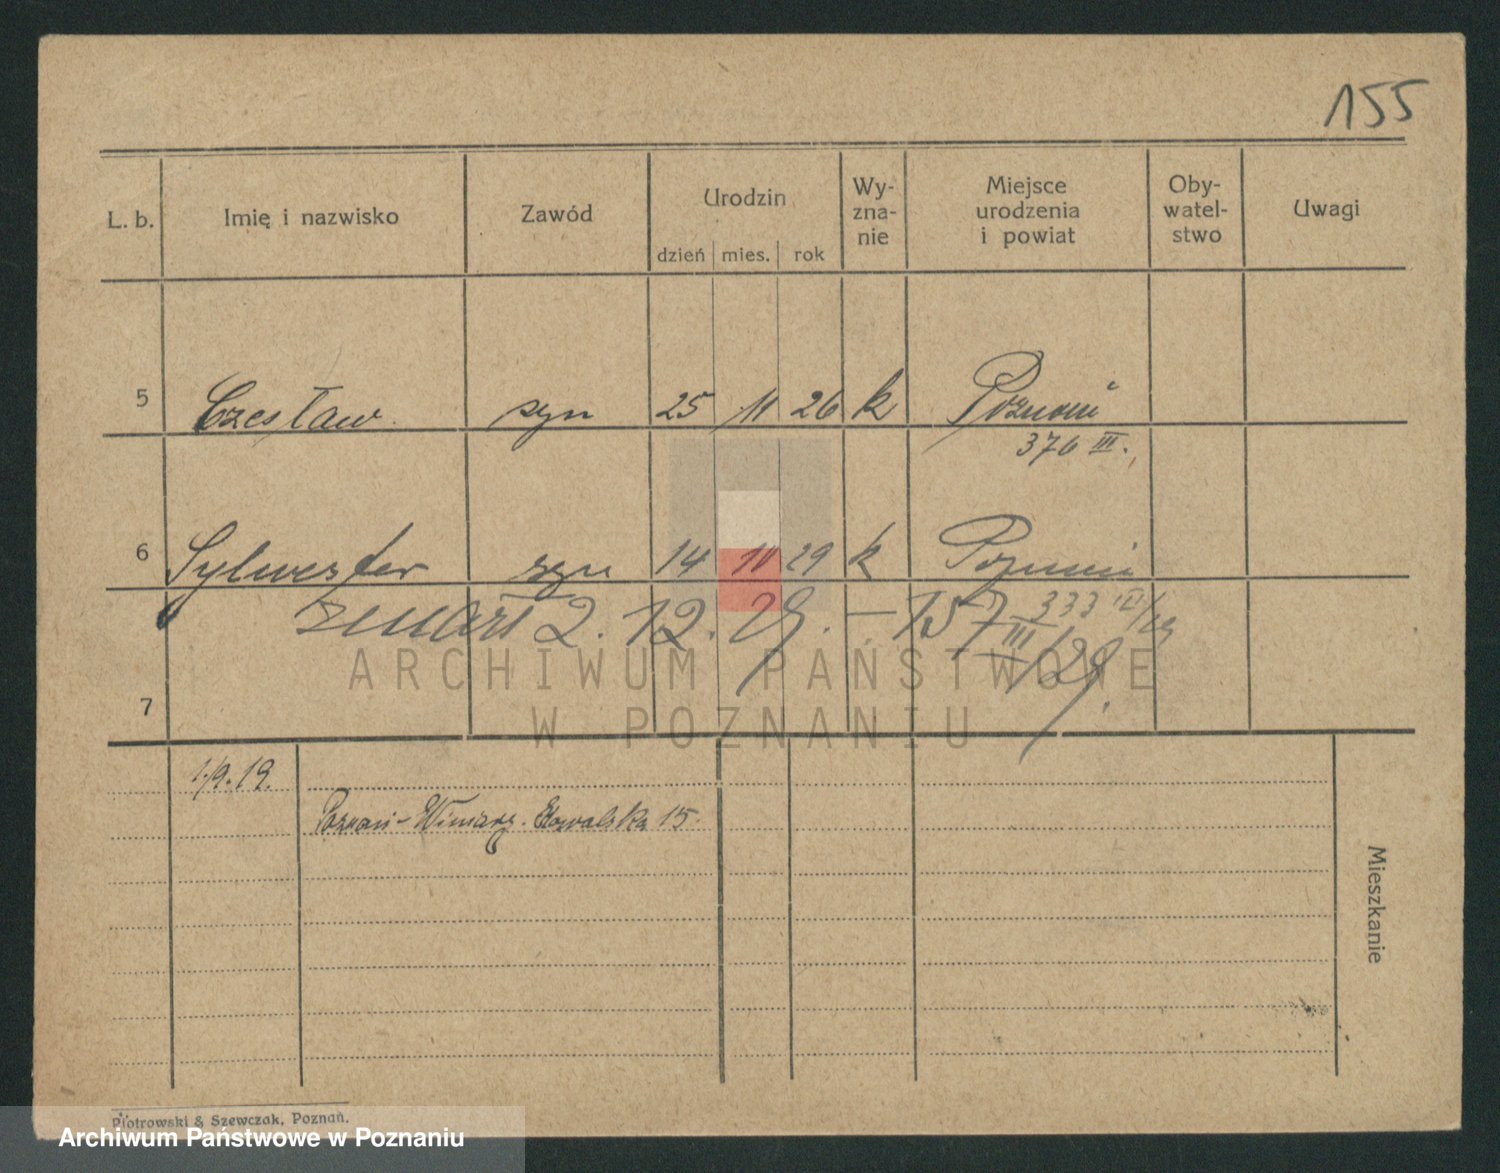 155
L. b. Imię i nazwisko Zawód Urodzin Wy-zna-nie Miejsce urodzenia i powiat Oby-watel-stwo Uwagi
dzień mies. rok
5 Czesław syn 25 11 26 k Poznań
376 III.
6 Sylwester syn 14 11 29 k Poznań
333
zmarł 2. 12. 29. – 157 III/29.
7
ARCHIWUM PAŃSTWOWE
W POZNANIU
1./9.19.
Poznań – Winiary. Kowalska 15.
Mieszkanie
Piotrowski & Szewczak, Poznań.
Archiwum Państwowe w Poznaniu